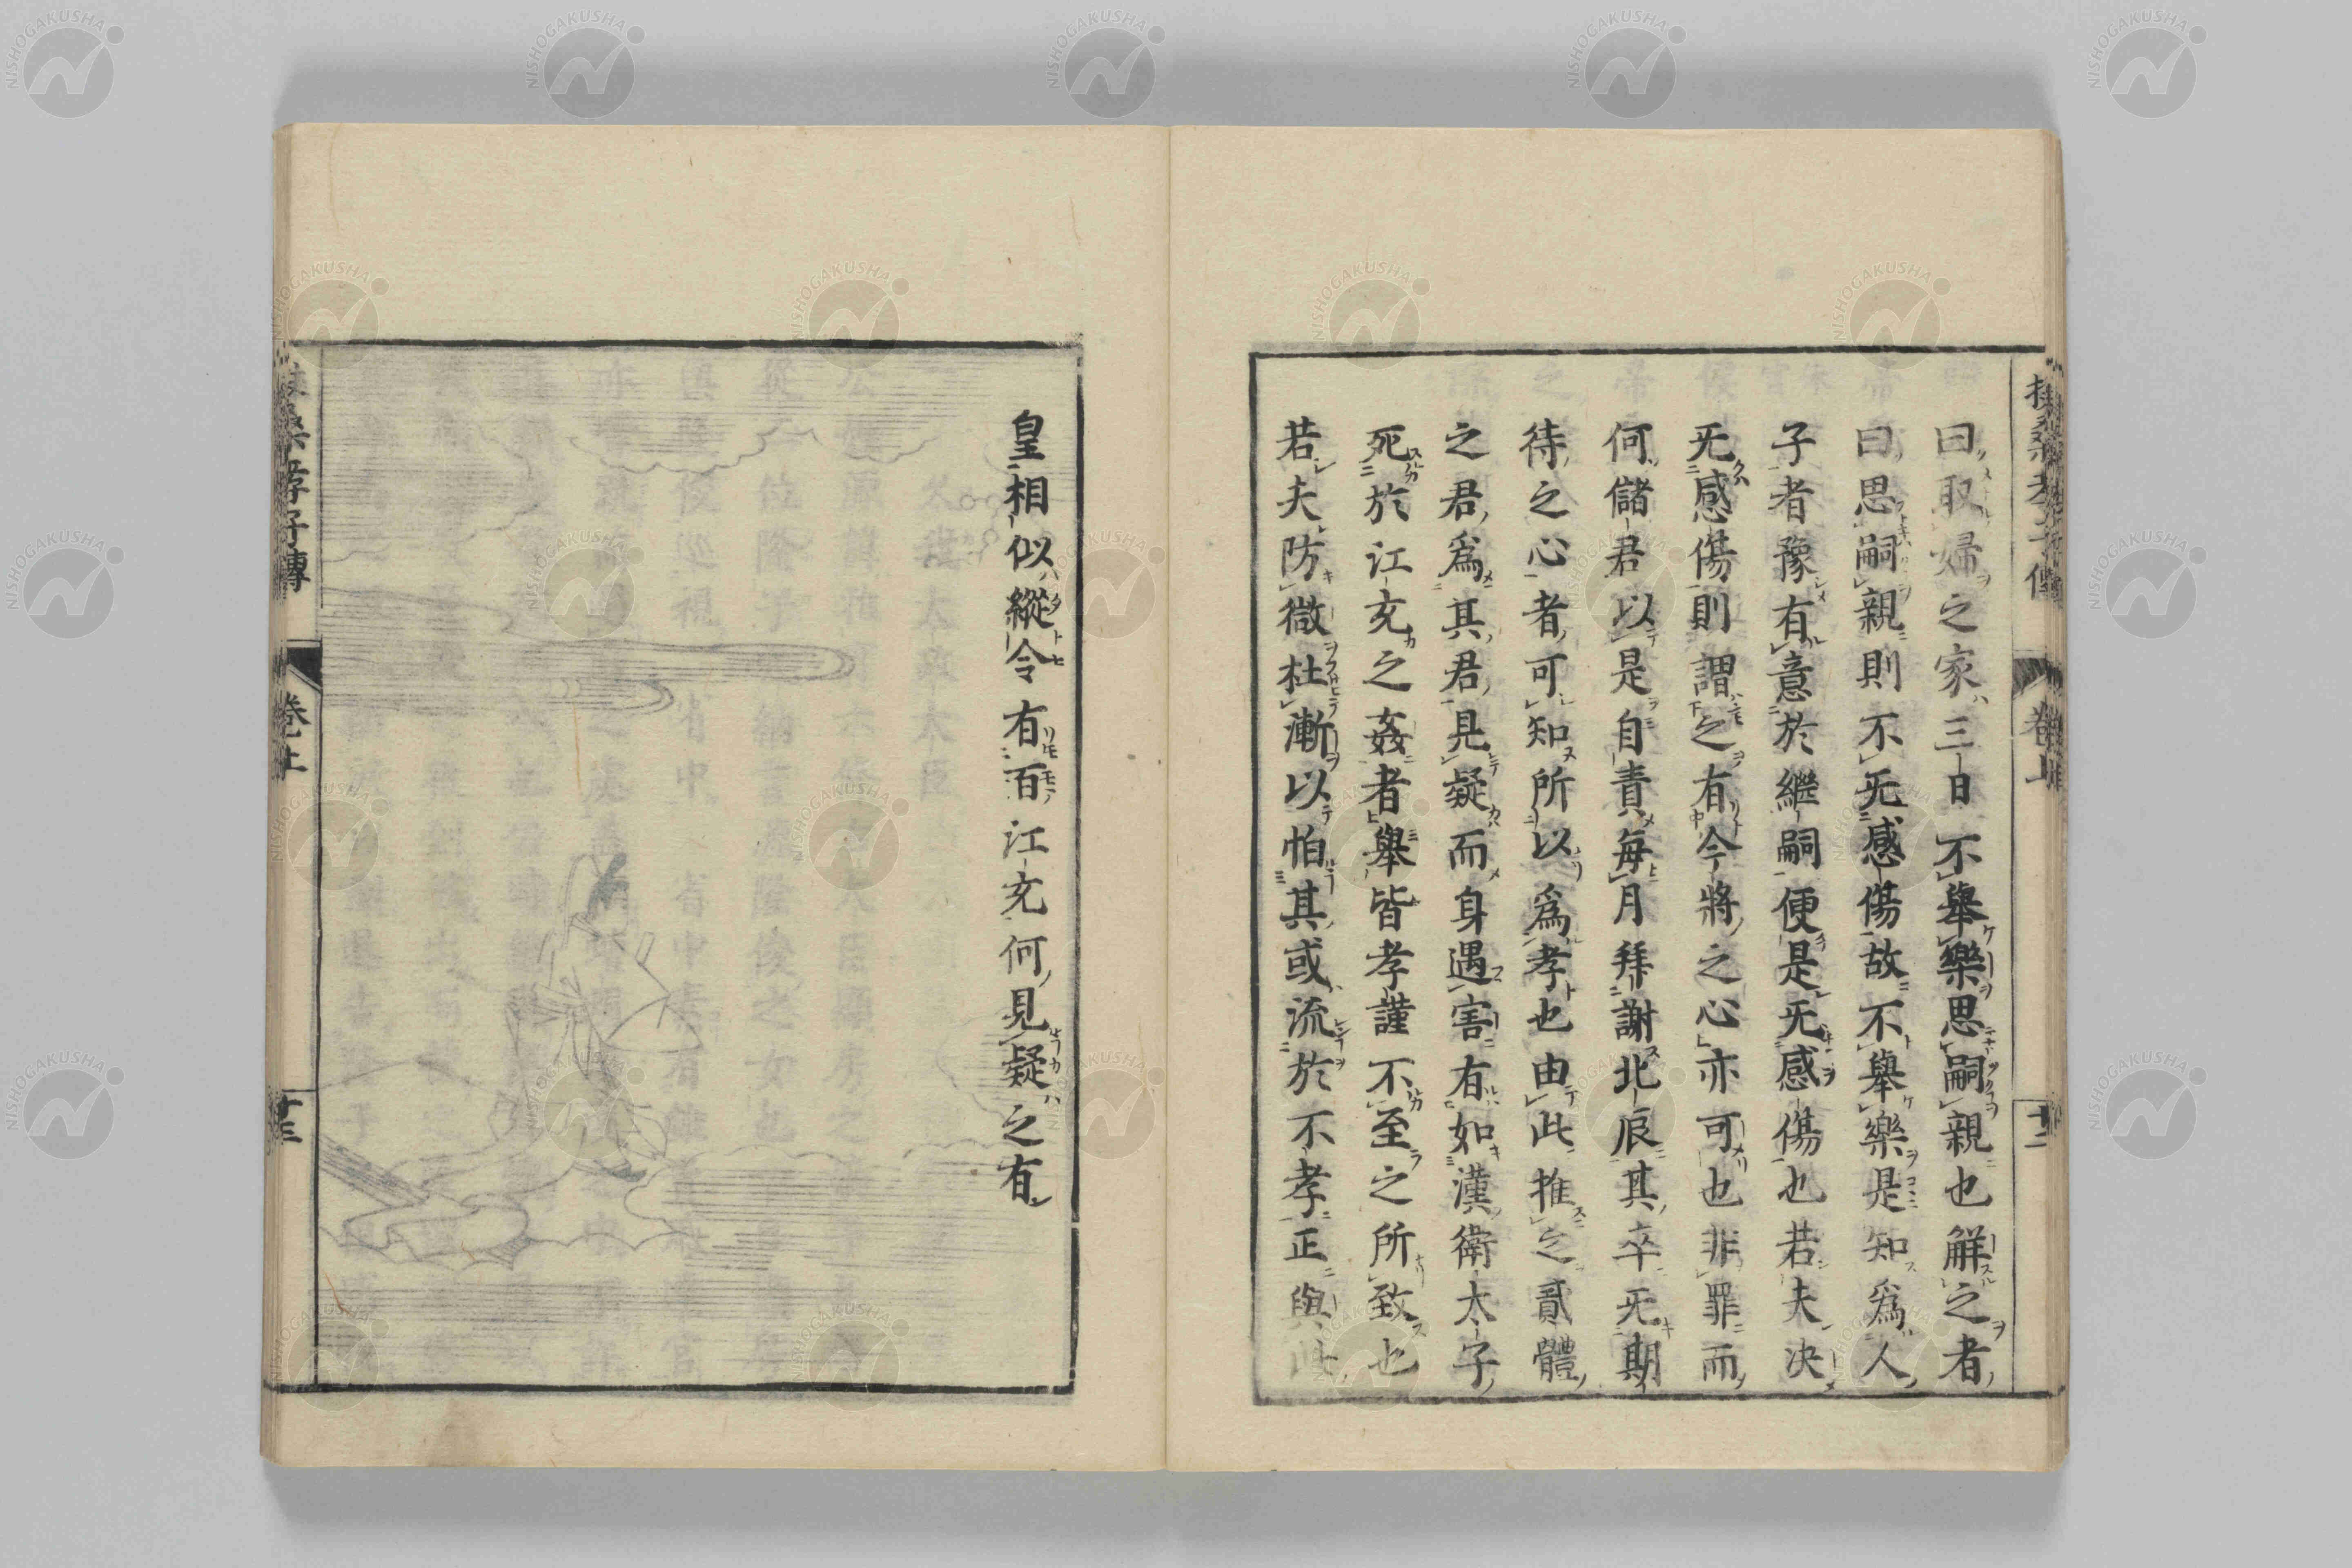 曰取婦之家三日不舉樂思嗣親也解之者
曰思嗣親則不无感傷故不舉樂是知爲人
子者豫有意於繼嗣便是无感傷也若夫決
无感傷則謂之有今將之心亦可也非罪而
何儲君以是自責毎月拜謝北辰其卒无期
待之心者可知所以爲孝也由此推之貳體
之君爲其君見疑而身遇害有如漢衛太子
死於江充之姦者舉皆孝謹不至之所致也
若夫防微杜漸以怕其或流於不孝正與此
皇相似縱令有百江充何見疑之有
卷上
十二
孝子傳
卷上
十三
NISHOGAKUSHA